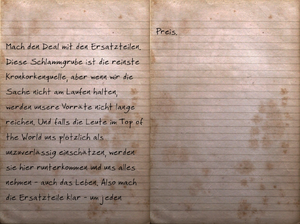 Mach den Deal mit den Ersatzteilen.
Diese Schlammgrube ist die reinste
Kronkorkenquelle, aber wenn wir die
Sache nicht am Laufen halten,
werden unsere Vorräte nicht lange
reichen. Und falls die Leute im Top of
the World uns plötzlich als
unzuverlässig einschätzen, werden
sie hier runterkommen und uns alles
nehmen - auch das Leben. Also mach
die Ersatzteile klar - um jeden
Preis.